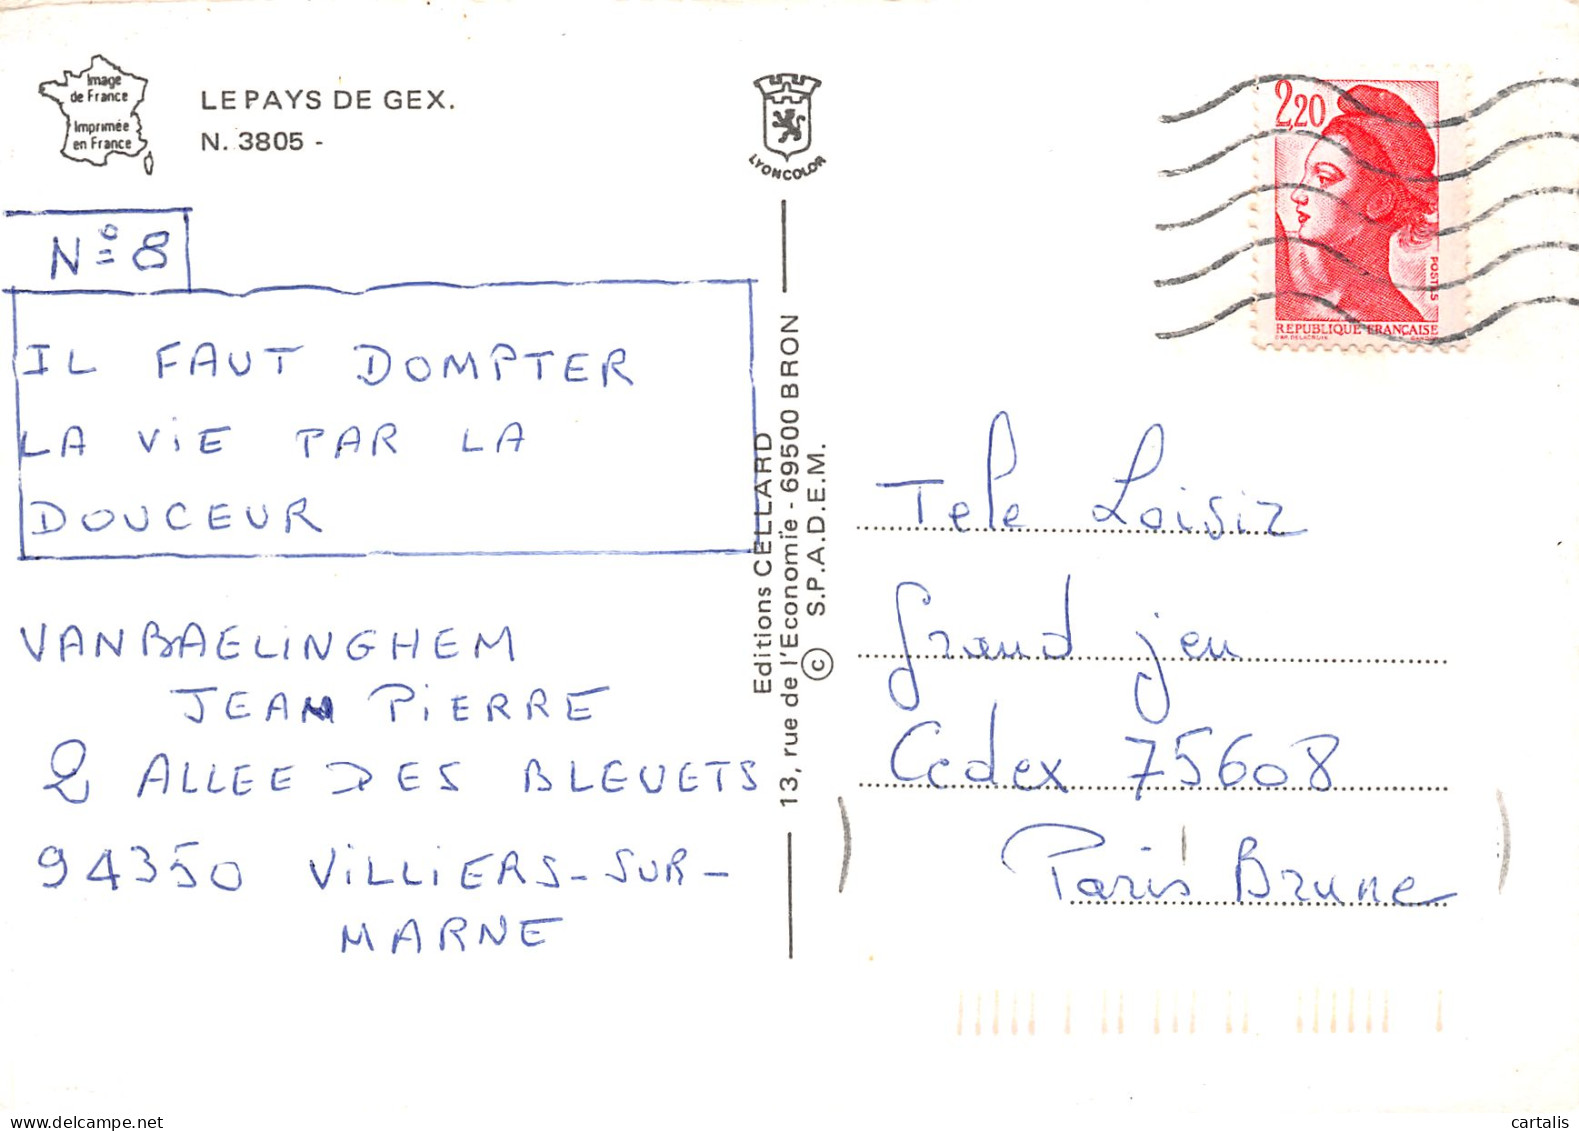 Image
de France
Imprimée
en France
LE PAYS DE GEX.
N. 3805 -
LYONCOLOR
2,20
POSTES
REPUBLIQUE FRANÇAISE
N° 8
IL FAUT DOMPTER
LA ViE PAR LA
DOUCEUR
VANBAELINGHEM
JEAN PiERRE
2 ALLEE DES BLEUETS
94350 ViLLiERS-SUR-
MARNE
Editions CELLARD
13, rue de l'Economie - 69500 BRON
© S.P.A.D.E.M.
Tele Loisir
grand jeu
Cedex 75608
Paris Brune
cartalis
www.delcampe.net